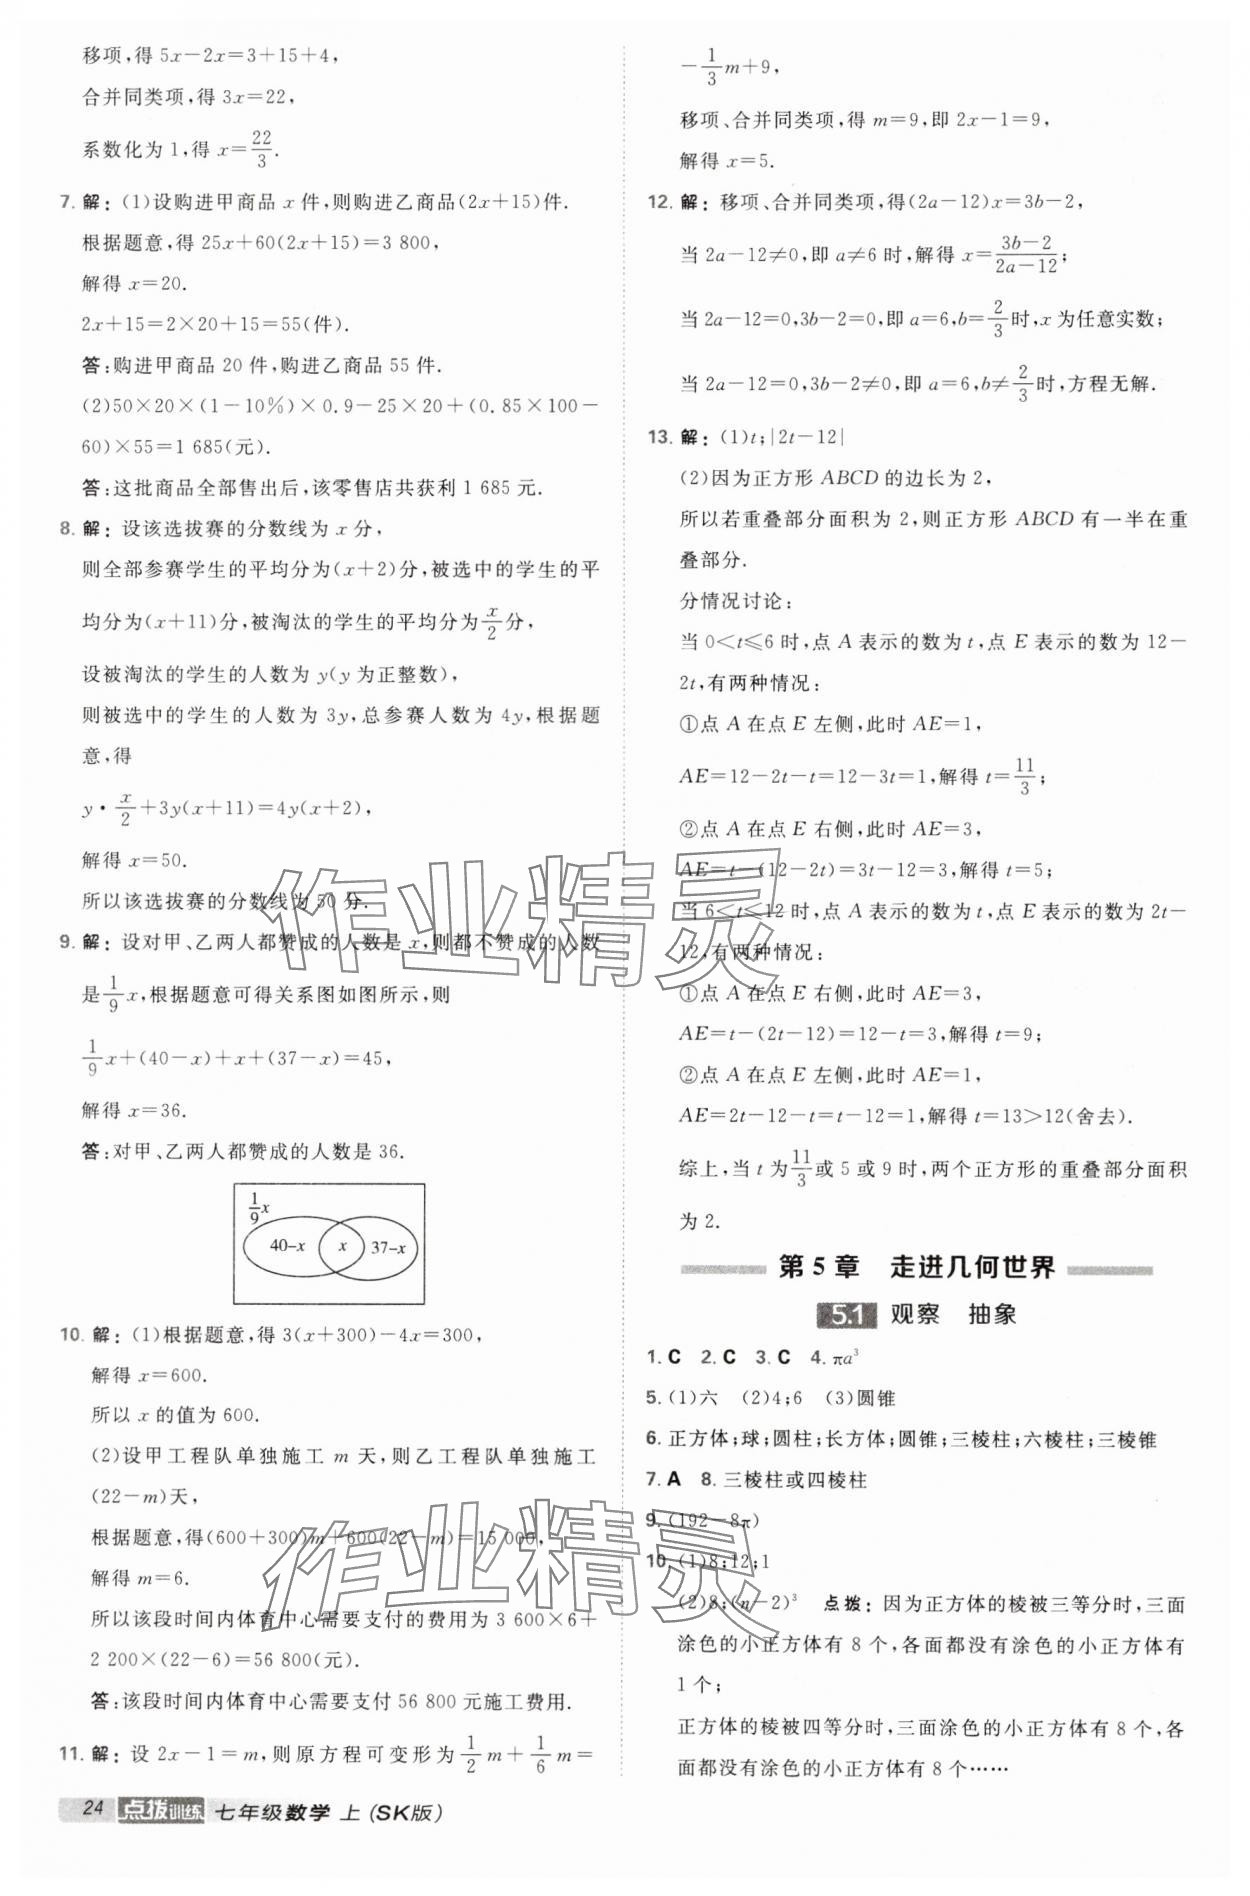 移项,得 5x－2x＝3＋15＋4,
合并同类项,得 3x＝22,
系数化为 1,得 x＝22/3.
7. 解：(1)设购进甲商品 x 件,则购进乙商品(2x＋15)件.
根据题意,得 25x＋60(2x＋15)＝3 800,
解得 x＝20.
2x＋15＝2×20＋15＝55(件).
答:购进甲商品 20 件,购进乙商品 55 件.
(2)50×20×(1－10%)×0.9－25×20＋(0.85×100－
60)×55＝1 685(元).
答:这批商品全部售出后,该零售店共获利 1 685 元.
8. 解：设该选拔赛的分数线为 x 分,
则全部参赛学生的平均分为(x＋2)分,被选中的学生的平
均分为(x＋11)分,被淘汰的学生的平均分为x/2分,
设被淘汰的学生的人数为 y(y 为正整数),
则被选中的学生的人数为 3y,总参赛人数为 4y,根据题
意,得
y·x/2＋3y(x＋11)＝4y(x＋2),
解得 x＝50.
所以该选拔赛的分数线为 50 分.
9. 解：设对甲、乙两人都赞成的人数是 x,则都不赞成的人数
是1/9x,根据题意可得关系图如图所示,则
1/9x＋(40－x)＋x＋(37－x)＝45,
解得 x＝36.
答:对甲、乙两人都赞成的人数是 36.
1/9x
40－x x 37－x
10. 解：(1)根据题意,得 3(x＋300)－4x＝300,
解得 x＝600.
所以 x 的值为 600.
(2)设甲工程队单独施工 m 天,则乙工程队单独施工
(22－m)天,
根据题意,得(600＋300)m＋600(22－m)＝15 000,
解得 m＝6.
所以该段时间内体育中心需要支付的费用为 3 600×6＋
2 200×(22－6)＝56 800(元).
答:该段时间内体育中心需要支付 56 800 元施工费用.
11. 解：设 2x－1＝m,则原方程可变形为1/2m＋1/6m＝
24 点拨训练 七年级数学 上(SK版)
－1/3m＋9,
移项、合并同类项,得 m＝9,即 2x－1＝9,
解得 x＝5.
12. 解：移项、合并同类项,得(2a－12)x＝3b－2,
当 2a－12≠0,即 a≠6 时,解得 x＝(3b－2)/(2a－12);
当 2a－12＝0,3b－2＝0,即 a＝6,b＝2/3时,x 为任意实数;
当 2a－12＝0,3b－2≠0,即 a＝6,b≠2/3时,方程无解.
13. 解：(1)t;|2t－12|
(2)因为正方形 ABCD 的边长为 2,
所以若重叠部分面积为 2,则正方形 ABCD 有一半在重
叠部分.
分情况讨论:
当 0＜t≤6 时,点 A 表示的数为 t,点 E 表示的数为 12－
2t,有两种情况:
①点 A 在点 E 左侧,此时 AE＝1,
AE＝12－2t－t＝12－3t＝1,解得 t＝11/3;
②点 A 在点 E 右侧,此时 AE＝3,
AE＝t－(12－2t)＝3t－12＝3,解得 t＝5;
当 6＜t≤12 时,点 A 表示的数为 t,点 E 表示的数为 2t－
12,有两种情况:
①点 A 在点 E 右侧,此时 AE＝3,
AE＝t－(2t－12)＝12－t＝3,解得 t＝9;
②点 A 在点 E 左侧,此时 AE＝1,
AE＝2t－12－t＝t－12＝1,解得 t＝13＞12(舍去).
综上,当 t 为11/3或 5 或 9 时,两个正方形的重叠部分面积
为 2.
第 5 章 走进几何世界
5.1 观察 抽象
1. C 2. C 3. C 4. πa³
5. (1)六 (2)4;6 (3)圆锥
6. 正方体;球;圆柱;长方体;圆锥;三棱柱;六棱柱;三棱锥
7. A 8. 三棱柱或四棱柱
9. (192－8π)
10. (1)8;12;1
(2)8;(n－2)³ 点拨：因为正方体的棱被三等分时,三面
涂色的小正方体有 8 个,各面都没有涂色的小正方体有
1 个;
正方体的棱被四等分时,三面涂色的小正方体有 8 个,各
面都没有涂色的小正方体有 8 个……
作业精灵
作业精灵